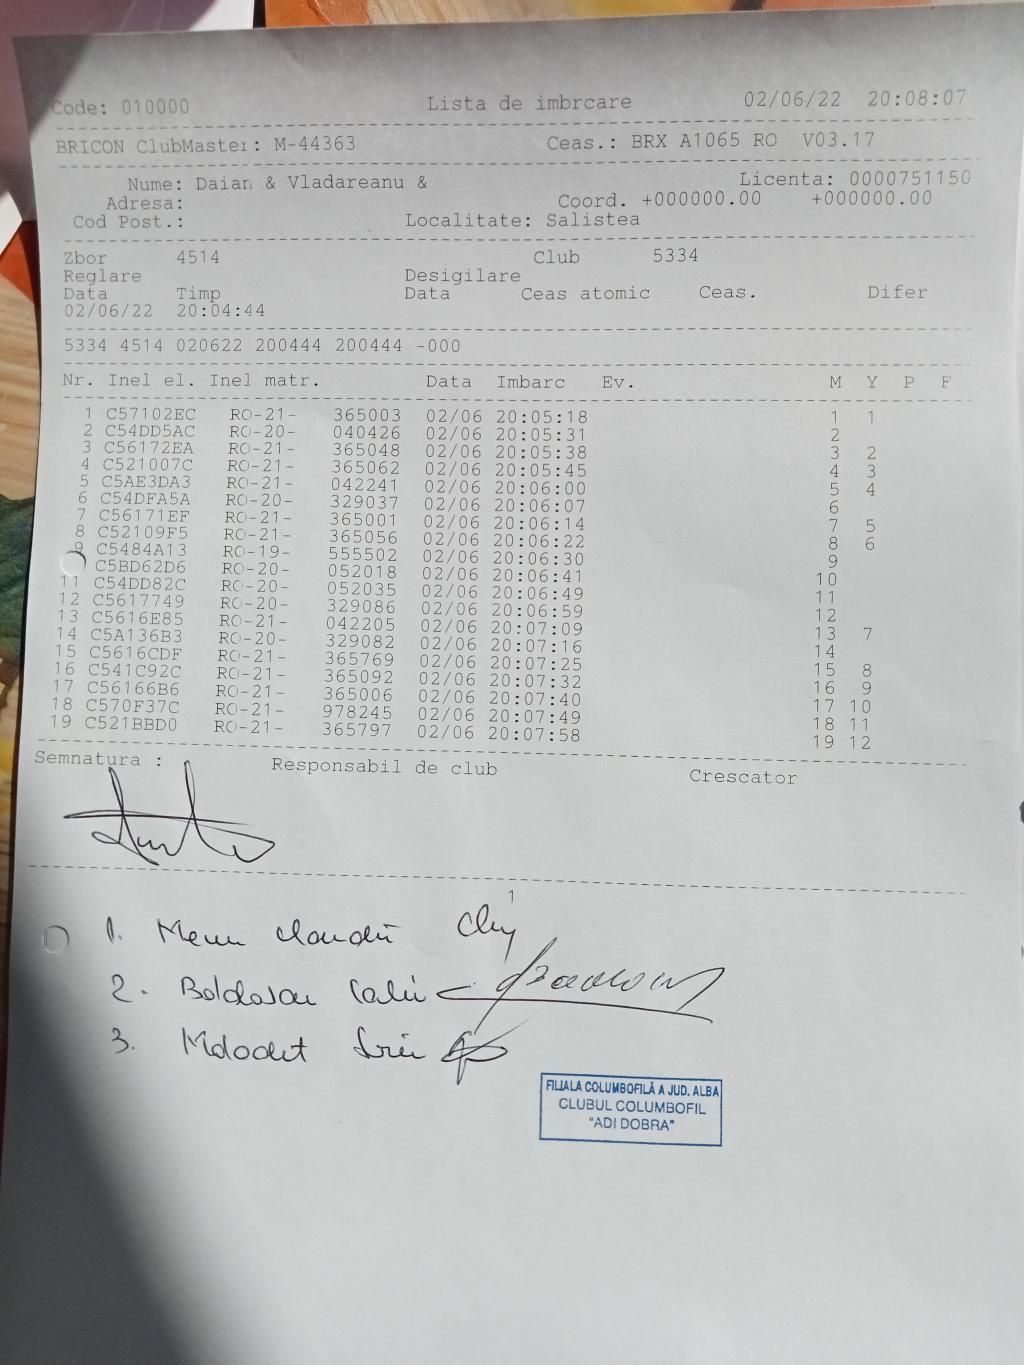 Code: 010000 Lista de imbrcare 02/06/22 20:08:07
BRICON ClubMaster: M-44363 Ceas.: BRX A1065 RO V03.17
Nume: Daian & Vladareanu & Licenta: 0000751150
Adresa: Coord. +000000.00 +000000.00
Cod Post.: Localitate: Salistea
Zbor 4514 Club 5334
Reglare Desigilare
Data Timp Data Ceas atomic Ceas. Difer
02/06/22 20:04:44
5334 4514 020622 200444 200444 -000
Nr. Inel el. Inel matr. Data Imbarc Ev. M Y P F
1 C57102EC RO-21- 365003 02/06 20:05:18 1 1
2 C54DD5AC RO-20- 040426 02/06 20:05:31 2
3 C56172EA RO-21- 365048 02/06 20:05:38 3 2
4 C521007C RO-21- 365062 02/06 20:05:45 4 3
5 C5AE3DA3 RO-21- 042241 02/06 20:06:00 5 4
6 C54DFA5A RO-20- 329037 02/06 20:06:07 6
7 C56171EF RO-21- 365001 02/06 20:06:14 7 5
8 C52109F5 RO-21- 365056 02/06 20:06:22 8 6
9 C5484A13 RO-19- 555502 02/06 20:06:30 9
C5BD62D6 RO-20- 052018 02/06 20:06:41 10
11 C54DD82C RO-20- 052035 02/06 20:06:49 11
12 C5617749 RO-20- 329086 02/06 20:06:59 12
13 C5616E85 RO-21- 042205 02/06 20:07:09 13 7
14 C5A136B3 RO-20- 329082 02/06 20:07:16 14
15 C5616CDF RO-21- 365769 02/06 20:07:25 15 8
16 C541C92C RO-21- 365092 02/06 20:07:32 16 9
17 C56166B6 RO-21- 365006 02/06 20:07:40 17 10
18 C570F37C RO-21- 978245 02/06 20:07:49 18 11
19 C521BBD0 RO-21- 365797 02/06 20:07:58 19 12
Semnatura : Responsabil de club Crescator
1
1.
2.
3.
FILIALA COLUMBOFILĂ A JUD. ALBA
CLUBUL COLUMBOFIL
"ADI DOBRA"